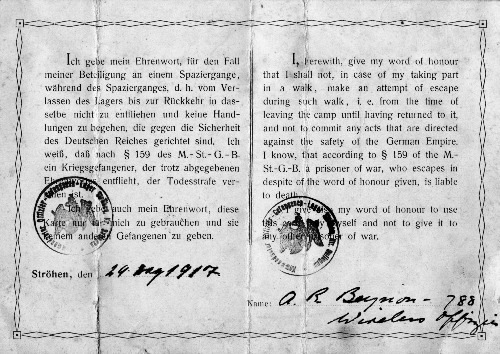 Ich gebe mein Ehrenwort, für den Fall
meiner Beteiligung an einem Spaziergange,
während des Spazierganges, d. h. vom Ver-
lassen des Lagers bis zur Rückkehr in das-
selbe nicht zu entfliehen und keine Hand-
lungen zu begehen, die gegen die Sicherheit
des Deutschen Reiches gerichtet sind. Ich
weiß, daß nach § 159 des M.-St.-G.-B.
ein Kriegsgefangener, der trotz abgegebenen
entflieht, der Todesstrafe ver-
ist.
Ich gebe auch mein Ehrenwort, diese
Karte nur für mich zu gebrauchen und sie
keinem anderen Gefangenen zu geben.
Ströhen, den 24 1917
I, herewith, give my word of honour
that I shall not, in case of my taking part
in a walk, make an attempt of escape
during such walk, i. e. from the time of
leaving the camp until having returned to it,
and not to commit any acts that are directed
against the safety of the German Empire.
I know, that according to § 159 of the M.-
St.-G.-B. a prisoner of war, who escapes in
despite of the word of honour given, is liable
to death.
I give also my word of honour to use
this myself and not to give it to
any other prisoner of war.
Name: A. R. Beynon - 788
Wireless Officer